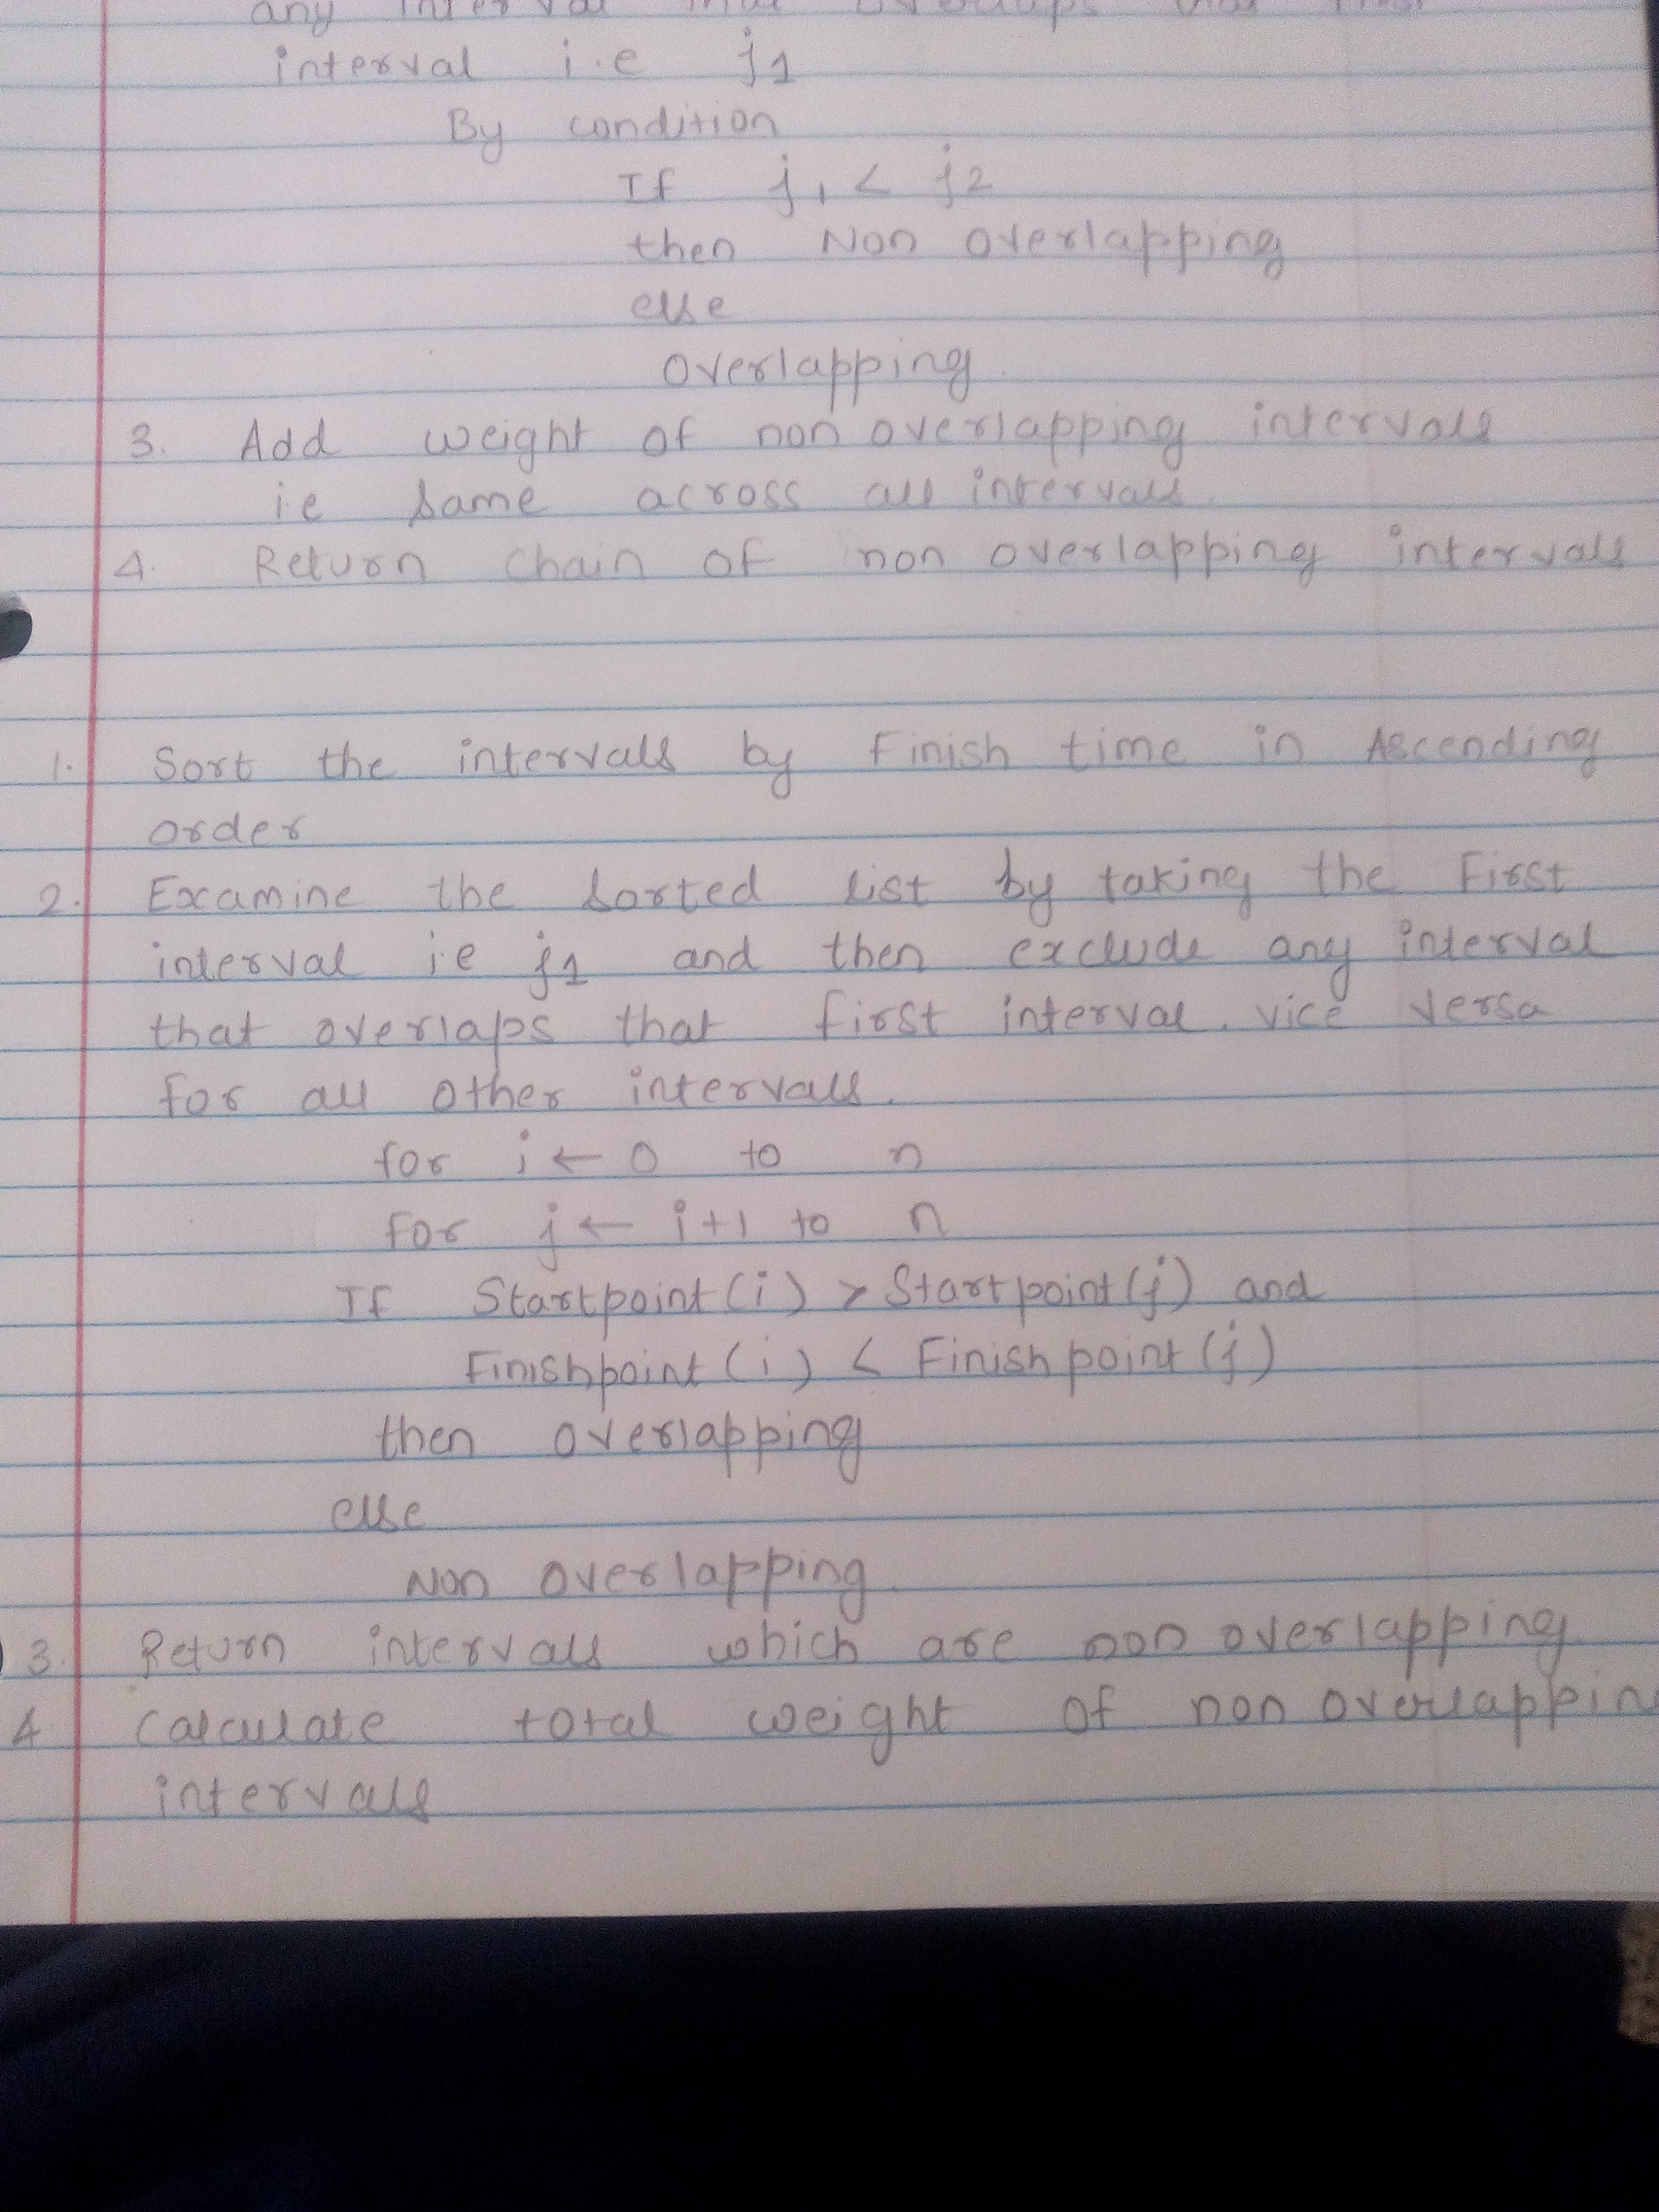 any interval that overlaps that first
interval i.e j1
By condition
If j1 < j2
then Non overlapping
else
overlapping.
3. Add weight of non overlapping intervals
i.e same across all intervals.
4. Return chain of non overlapping intervals
1. Sort the intervals by Finish time in Ascending
order
2. Examine the sorted list by taking the First
interval i.e j1 and then exclude any interval
that overlaps that first interval. vice versa
for all other intervals.
for i ← 0 to n
for j ← i+1 to n
If Startpoint(i) > Startpoint(j) and
Finishpoint(i) < Finishpoint(j)
then overlapping
else
Non overlapping.
3. Return intervals which are non overlapping.
4. Calculate total weight of non overlappin
intervals